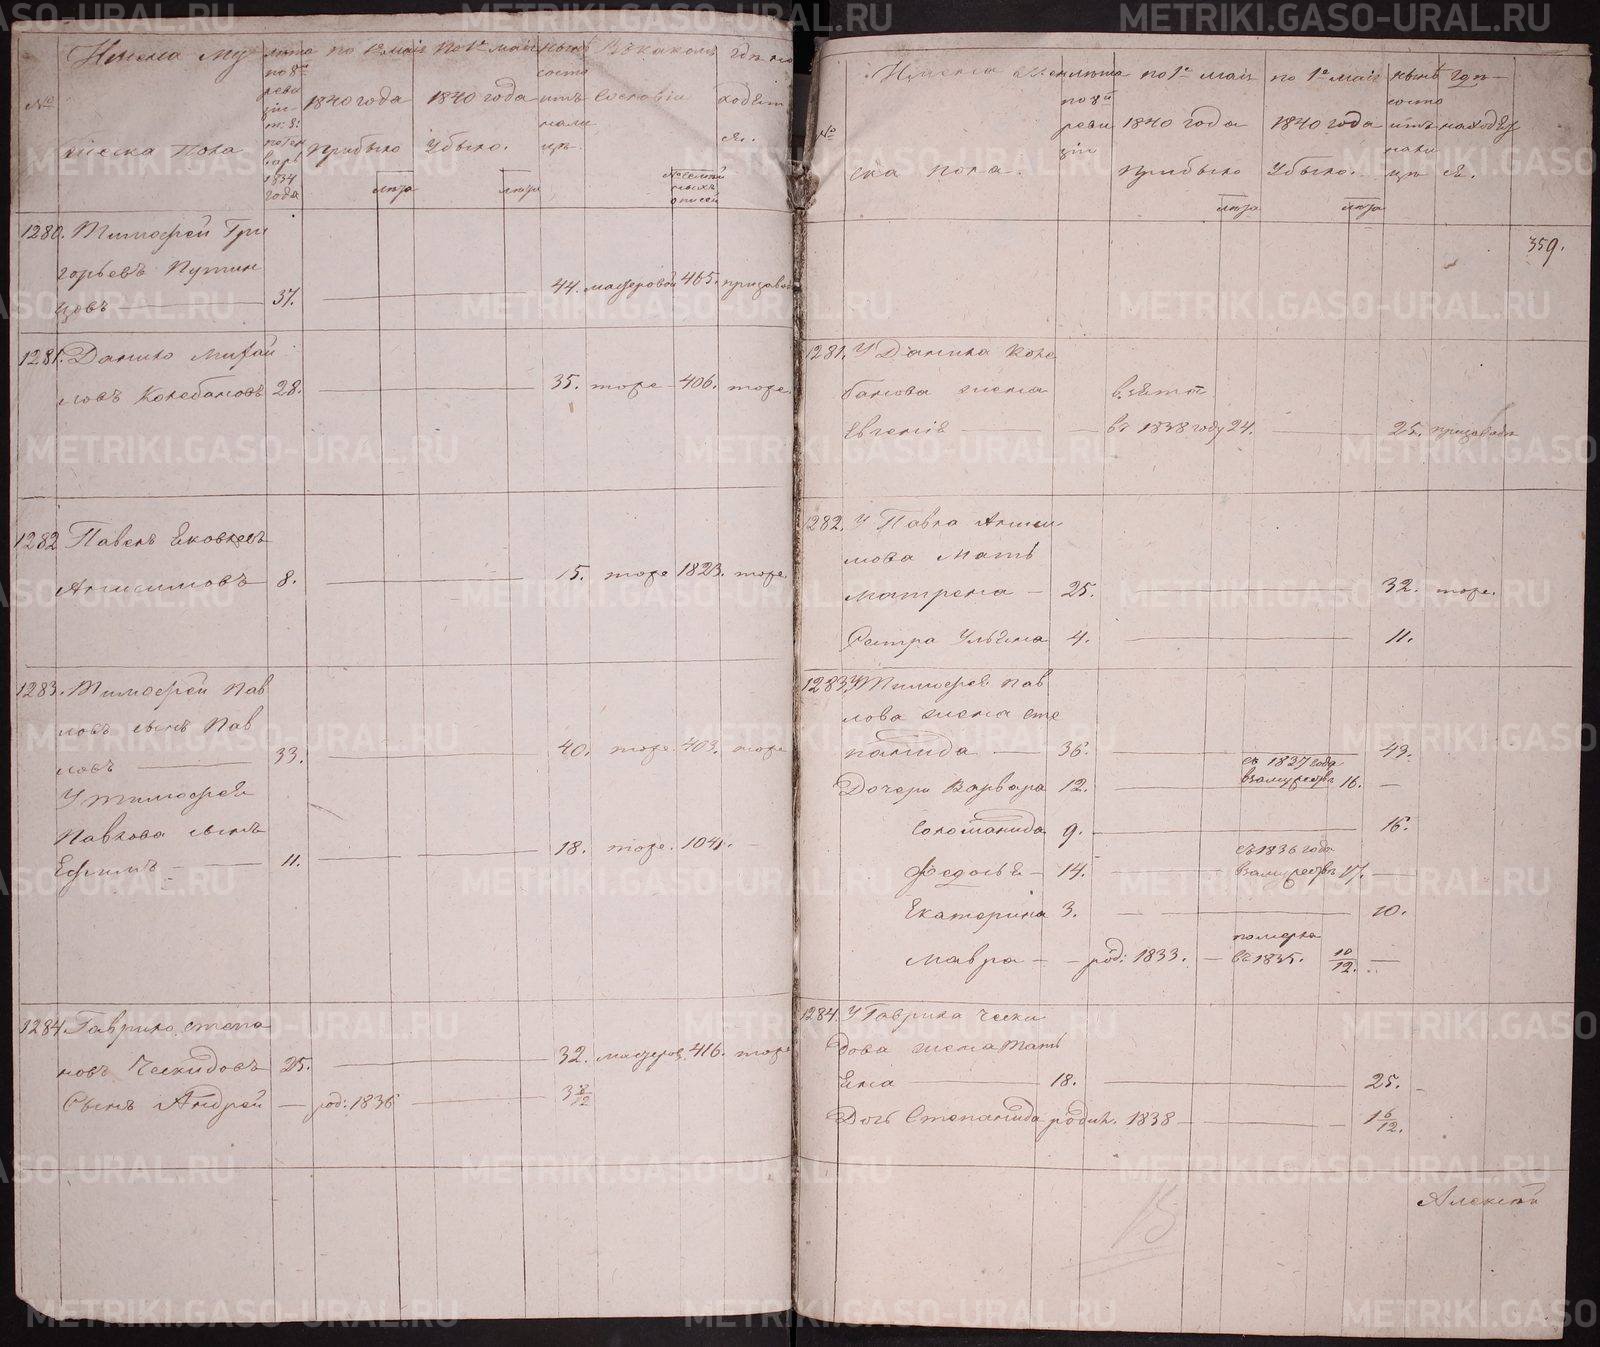 №
Имена му
жеска пола
лѣта
по 8й
реви
зіи
1834
года
по 1е маія
1840 года
Прибыло
лѣта
По 1е маія
1840 года
Убыло.
лѣта
нынѣ
состо
итъ
нали
цо.
Въ какомъ
Сословіи
№ семей
ныхъ
описей
гдѣ на
ходит
ся.
1280. Тимофей Гри
горьевъ Путин
цовъ 37. 44. мастеровой 465. при завод
1281. Данило Михай
ловъ Колебановъ 28. 35. тоже 406. тоже.
1282 Павелъ Яковлевъ
Анисимовъ 8. 15. тоже 1823. тоже.
1283. Тимофей Пав
ловъ сынъ Пав
ловъ 33. 40. тоже. 403. тоже
У Тимофея
Павлова сынъ
Ефимъ 11. 18. тоже. 1041.
1284. Гаврило Степа
новъ Ческидовъ 25. 32. мастеров. 416. тоже
Сынъ Андрей род: 1836 3 8/12
№
Имена женска
пола.
лѣта
по 8й
реви
зіи
по 1е маія
1840 года
прибыло
лѣта
по 1е маія
1840 года
Убыло.
лѣта
нынѣ
состо
итъ
нали
цо
гдѣ
находит
ся.
359.
1281. У Данила Коле
банова жена взята
Евгенія въ 1838 году 24. 25. при заводѣ
1282. У Павла Аниси
мова Мать
Матрена 25. 32. тоже.
Сестра Ульяна 4. 11.
1283. У Тимофея Пав
лова жена Сте
панида 36. 43.
Дочери Варвара 12. съ 1837 года взамужествѣ 16.
Соломанида 9. 16.
Федосья 14. съ 1836 года взамужествѣ 17.
Екатерина 3. 10.
Мавра род: 1833. померла въ 1835. 10/12.
1284. У Гаврила Чески
дова жена Тать
яна 18. 25.
Дочь Степанида родил. 1838 1 6/12.
Алексѣй
METRIKI.GASO-URAL.RU